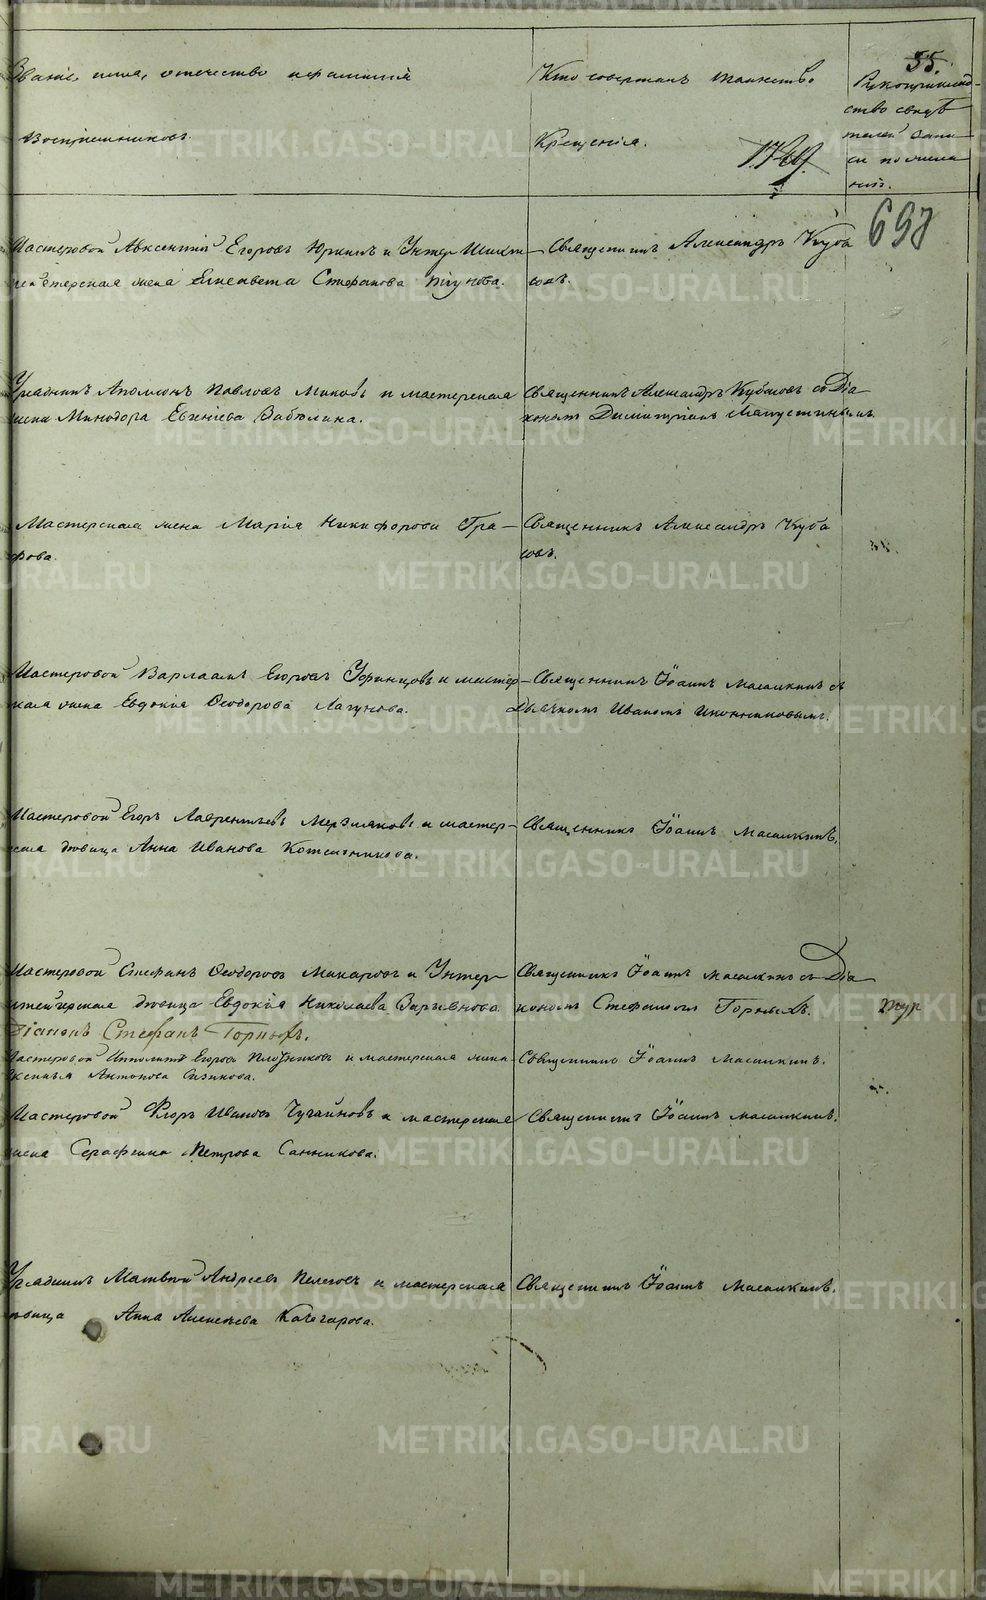 55.
Званіе, имя, отечество и фамилія
Воспріемниковъ.
Кто совершалъ таинство
Крещенія.
Рукоприклад-
ство свидѣ
телей запи
си по жела
нію.
698
Мастеровой Авксентій Егоровъ Юринъ и Унтеръ Шихт
мейстерская жена Елисавета Стефанова
Священникъ Александръ Куба
совъ.
Урядникъ Аполлонъ Павловъ и мастерская
жена Минодора Евгеніева Забѣлина.
Священникъ Александръ Кубасовъ съ Діа
кономъ Димитріемъ Ляпустинымъ.
Мастерская жена Марія Никифорова Гра-
фова.
Священникъ Александръ Куба
совъ.
Мастеровой Варлаамъ Егоровъ Уфинцовъ и мастер-
ская жена Евдокія Ѳеодорова Лагунова.
Священникъ Іоаннъ Масалкинъ съ
Дьячкомъ Иваномъ Иконниковымъ.
Мастеровой Егоръ Лаврентьевъ Мерзляковъ и мастер-
ская дѣвица Анна Иванова Котельникова.
Священникъ Іоаннъ Масалкинъ.
Мастеровой Стефанъ Ѳеодоровъ Макаровъ и Унтер
дѣвица Евдокія Николаева
Священникъ Іоаннъ Масалкинъ съ Діа
кономъ Стефаномъ Горныхъ.
Діаконъ Стефанъ Горныхъ.
Мастеровой Ипполитъ Егоровъ Плотниковъ и мастерская жена
Ксенья Антонова Сизикова.
Священникъ Іоаннъ Масалкинъ.
Мастеровой Флоръ Ивановъ и мастерская
жена Серафима Петрова Санникова.
Священникъ Іоаннъ Масалкинъ.
Урядникъ Матвѣй Андреевъ и мастерская
дѣвица Анна Алексѣева Качегарова.
Священникъ Іоаннъ Масалкинъ.
METRIKI.GASO-URAL.RU